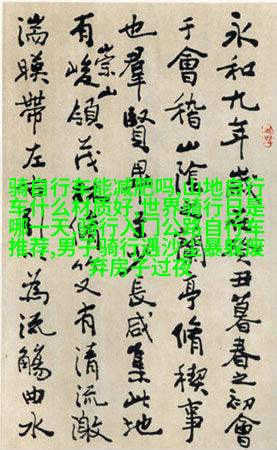 永和九年癸丑暮春之初會
于會稽山陰蘭亭脩禊事
也羣賢畢至少長咸集此地
有崇山峻領茂林脩竹又有清流激
湍暎帶左右引為流觴曲水
骑自行车能减肥吗,山地自行
车什么材质好,世界骑行日是
哪一天,骑行入门公路自行车
推荐,男子骑行遇沙尘暴躲废
弃房子过夜